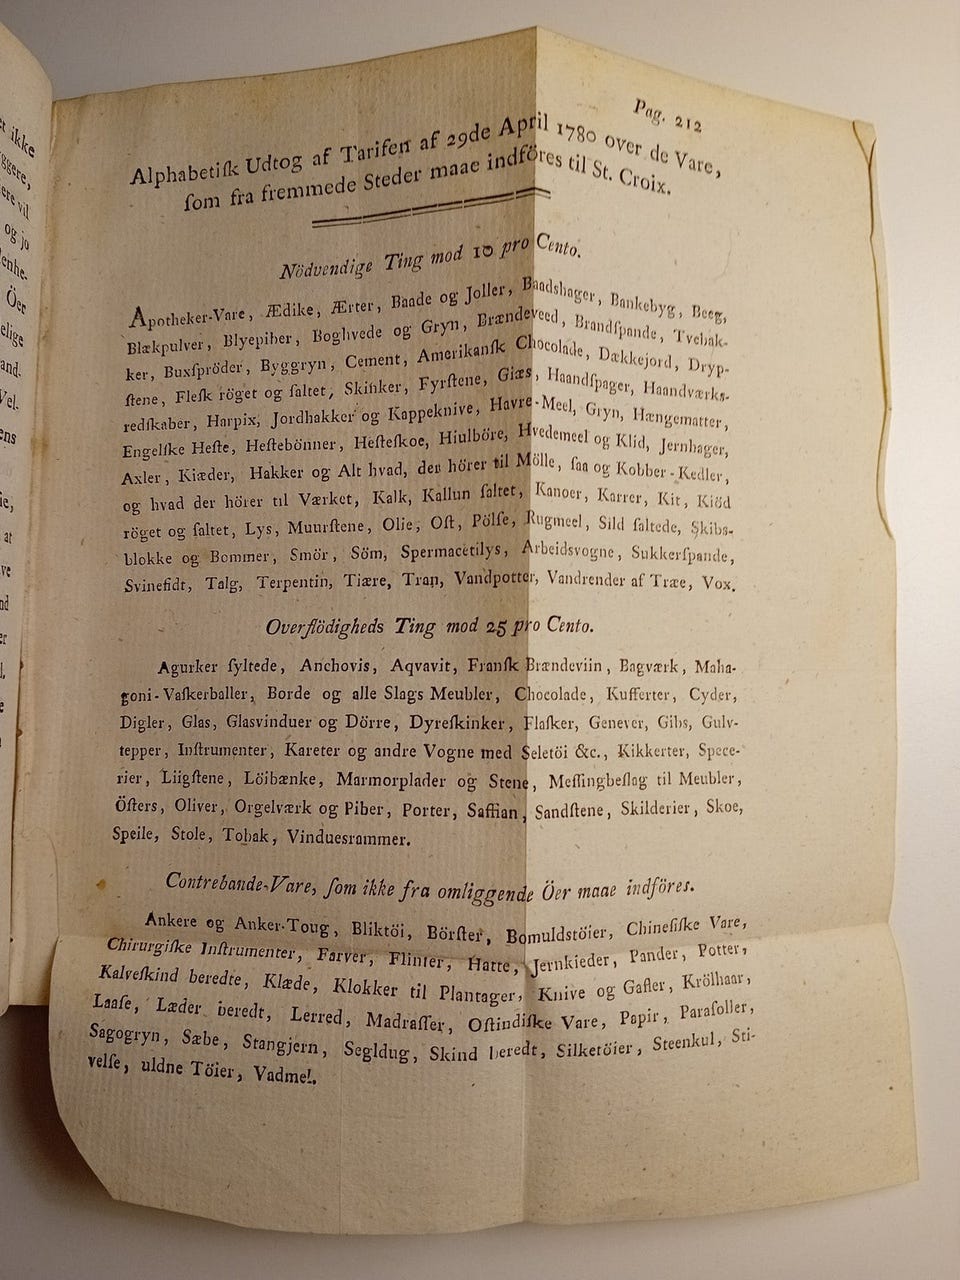 Pag. 212
Alphabetiſk Udtog af Tarifen af 29de April 1780 over de Vare,
ſom fra fremmede Steder maae indföres til St. Croix.
Nödvendige Ting mod 10 pro Cento.
Apotheker-Vare, Ædike, Ærter, Baade og Joller, Baadshager, Bankebyg, Beeg,
Blækpulver, Blyepiber, Boghvede og Gryn, Brændeveed, Brandſpande, Tvebak-
ker, Buxſpröder, Byggryn, Cement, Amerikanſk Chocolade, Dækkejord, Dryp-
ſtene, Fleſk röget og ſaltet, Skinker, Fyrſtene, Giæs, Haandſpager, Haandværks-
redſkaber, Harpix, Jordhakker og Kappeknive, Havre-Meel, Gryn, Hængematter,
Engelſke Heſte, Heſtebönner, Heſteſkoe, Hiulböre, Hvedemeel og Klid, Jernhager,
Axler, Kiæder, Hakker og Alt hvad, der hörer til Mölle, ſaa og Kobber-Kedler,
og hvad der hörer til Værket, Kalk, Kallun ſaltet, Kanoer, Karrer, Kit, Kiöd
röget og ſaltet, Lys, Muurſtene, Olie, Oſt, Pölſe, Rugmeel, Sild ſaltede, Skibs-
blokke og Bommer, Smör, Söm, Spermacetilys, Arbeidsvogne, Sukkerſpande,
Svinefidt, Talg, Terpentin, Tiære, Tran, Vandpotter, Vandrender af Træe, Vox.
Overflödigheds Ting mod 25 pro Cento.
Agurker ſyltede, Anchovis, Aqvavit, Franſk Brændeviin, Bagværk, Maha-
goni-Vaſkerballer, Borde og alle Slags Meubler, Chocolade, Kufferter, Cyder,
Digler, Glas, Glasvinduer og Dörre, Dyreſkinker, Flaſker, Genever, Gibs, Gulv-
tepper, Inſtrumenter, Kareter og andre Vogne med Seletöi &c., Kikkerter, Spece-
rier, Liigſtene, Löibænke, Marmorplader og Stene, Meſſingbeſlag til Meubler,
Öſters, Oliver, Orgelværk og Piber, Porter, Saffian, Sandſtene, Skilderier, Skoe,
Speile, Stole, Tobak, Vinduesrammer.
Contrebande-Vare, ſom ikke fra omliggende Öer maae indföres.
Ankere og Anker-Toug, Bliktöi, Börſter, Bomuldstöier, Chineſiſke Vare,
Chirurgiſke Inſtrumenter, Farver, Flinter, Hatte, Jernkieder, Pander, Potter,
Kalveſkind beredte, Klæde, Klokker til Plantager, Knive og Gafler, Krölhaar,
Laaſe, Læder beredt, Lerred, Madraſſer, Oſtindiſke Vare, Papir, Paraſoller,
Sagogryn, Sæbe, Stangjern, Segldug, Skind beredt, Silketöier, Steenkul, Sti-
velſe, uldne Töier, Vadmel.